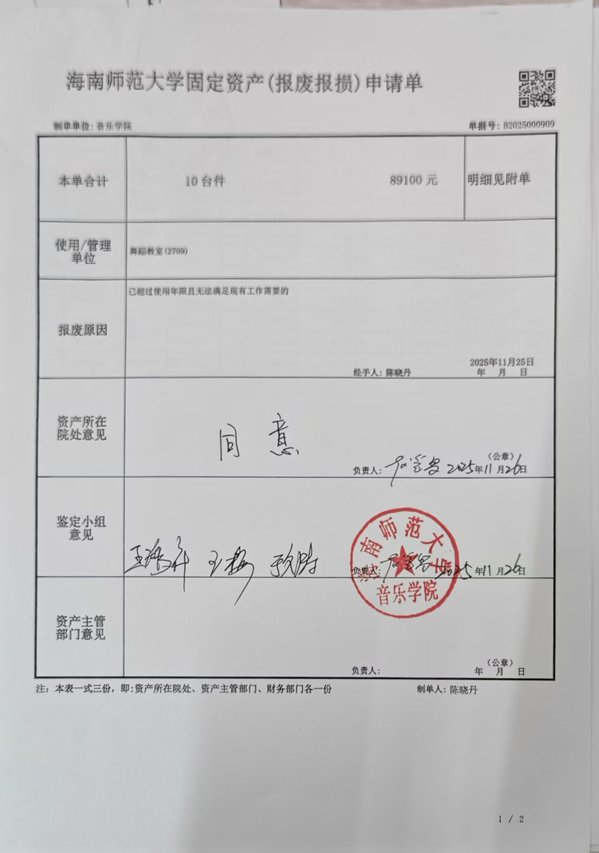 海南师范大学固定资产(报废报损)申请单
制单单位: 音乐学院 单据号: B2025000909
本单合计 10台件 89100 元 明细见附单
使用/管理
单位
舞蹈教室(2709)
报废原因
已超过使用年限且无法满足现有工作需要的
经手人: 陈晓丹
2025年11月25日
年 月 日
资产所在
院处意见
同意
(公章)
负责人: 2025年11月26日
鉴定小组
意见
负责人: 2025年11月26日
海南师范大学
音乐学院
资产主管
部门意见
(公章)
负责人: 年 月 日
注: 本表一式三份, 即:资产所在院处、资产主管部门、财务部门各一份 制单人: 陈晓丹
1 / 2